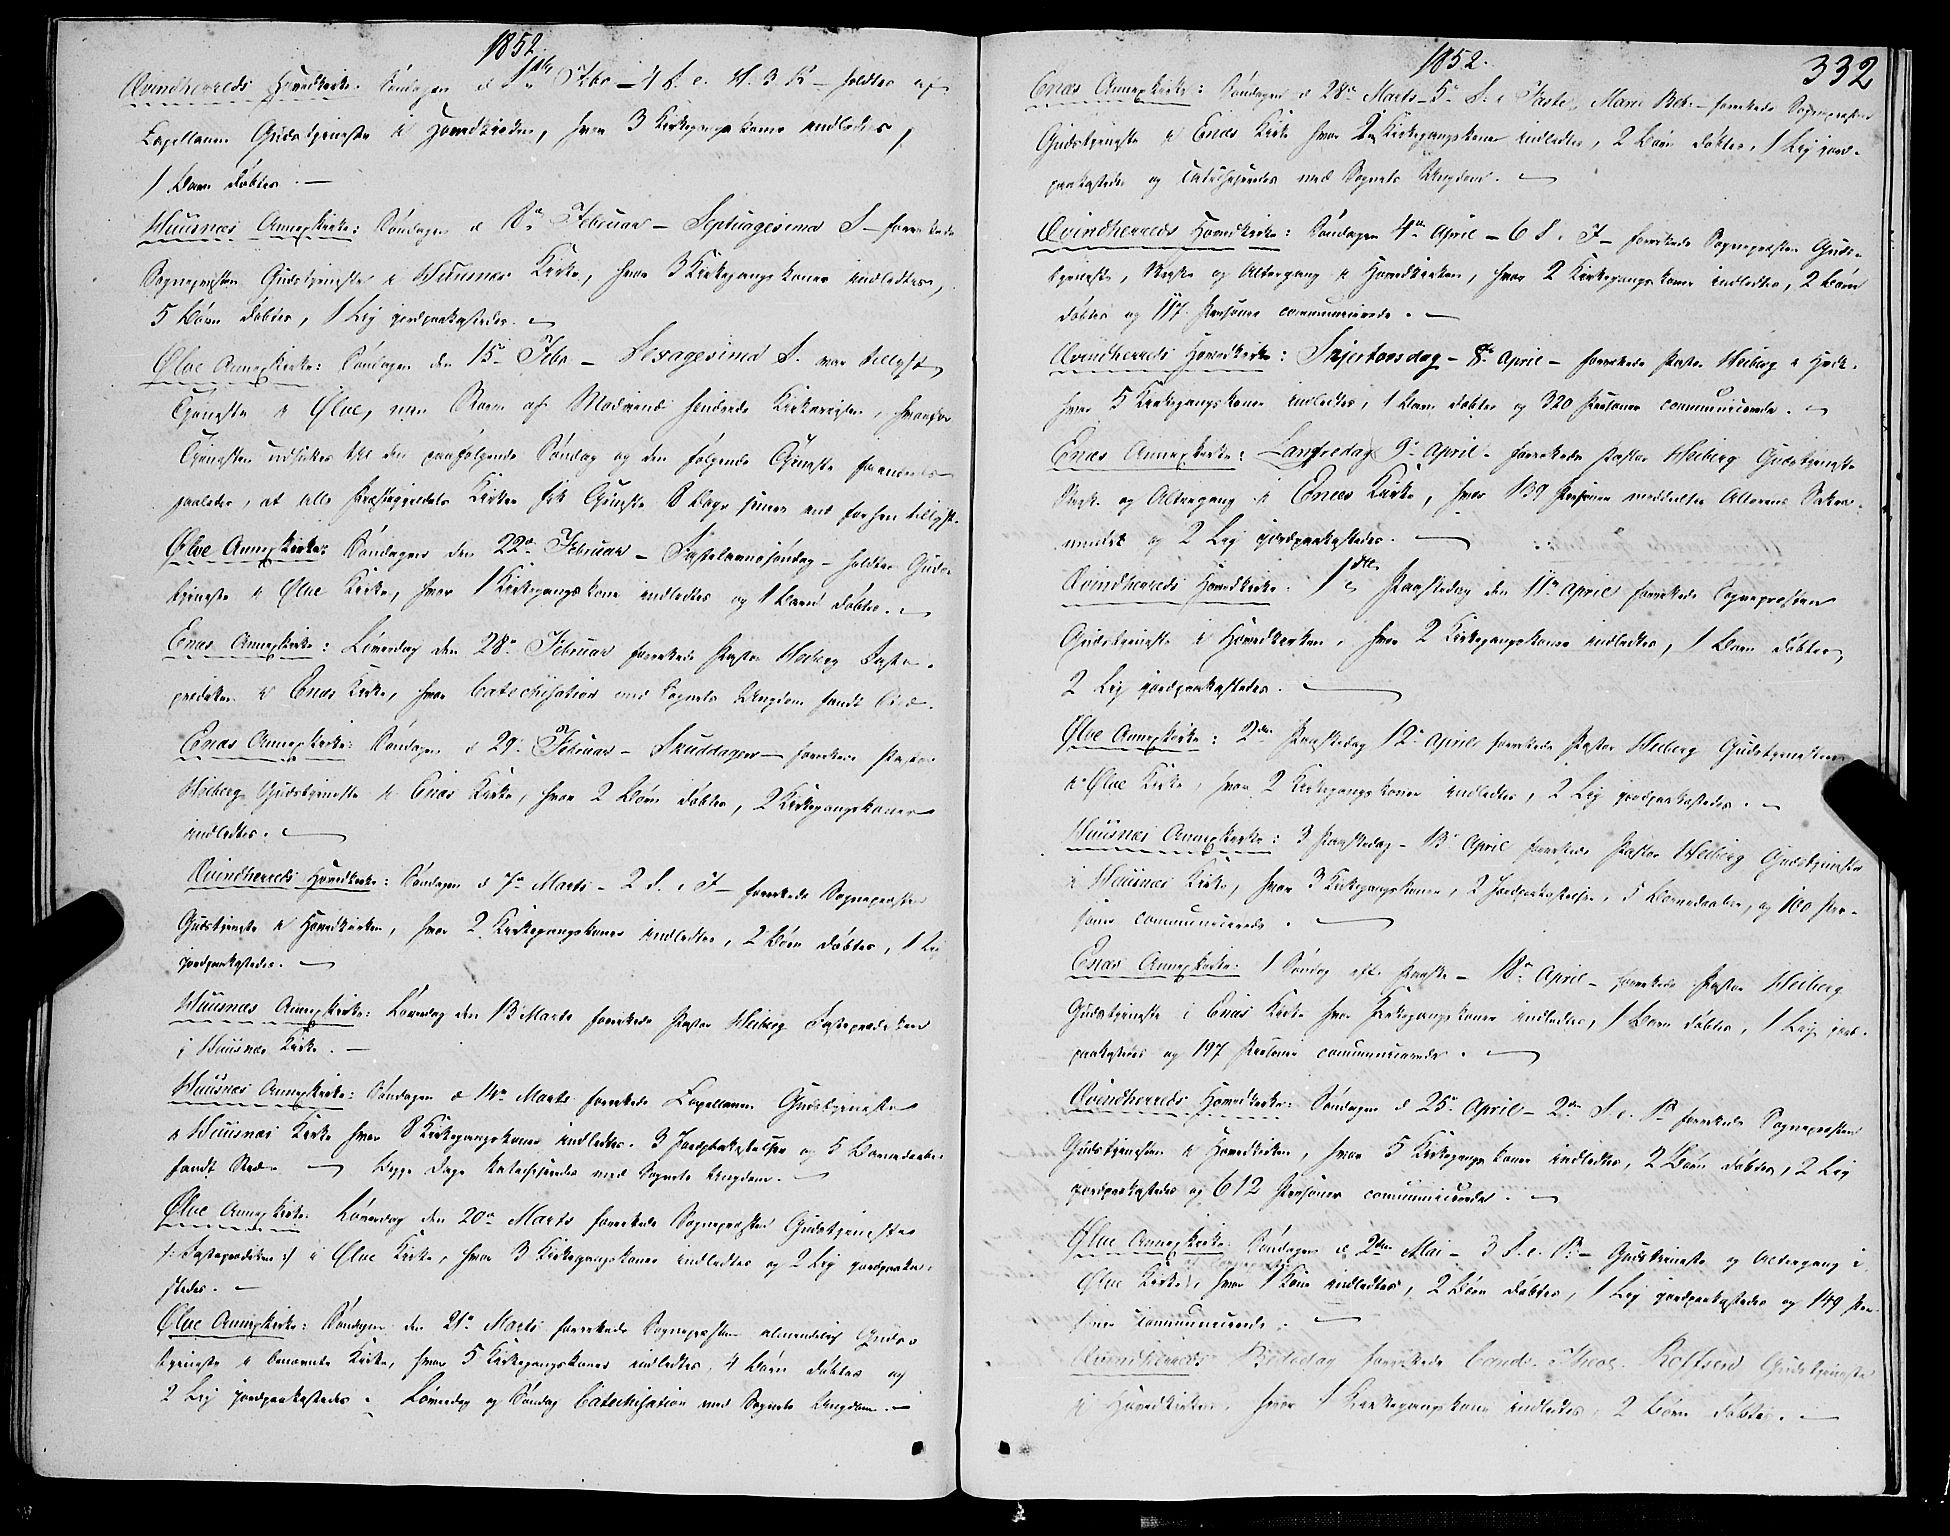 1852
Qvindherreds Hovedkirke. Søndagen d 1ste Febr – 4 S. e. H. 3 K – holdtes af
Capellanen Gudstjeneste i Hovedkirken, hvor 3 Kirkegangskoner indledtes,
1 Barn døbtes. –
Huusnæs Annexkirke: Søndagen d 8de Februar – Septuagesima S – forrettede
Sognepræsten Gudstjeneste i Huusnæs Kirke, hvor 3 Kirkegangskoner indledtes,
5 Børn døbtes, 1 Liig jordpaakastedes. –
Ølve Annexkirke: Søndagen den 15de Febr – Sexagesima S. var tillyst
Tjeneste i Ølve, men Storm af Modvind hindrede Kirkereisen, hvorfor
Tjenesten udsattes til den paafølgende Søndag og den følgende Tjeneste forandre-
saaledes, at alle Præstegjeldets Kirker fik Tjeneste 8 Dage senere end forhen tillyst.
Ølve Annexkirke: Søndagen den 22de Februar – Fastelavnssøndag – holdtes Guds-
tjeneste i Ølve Kirke, hvor 1 Kirkegangskone indledtes og 1 Barn døbtes. –
Enæs Annexkirke: Løverdag den 28de Februar forrettede Pastor Heiberg Faste-
prædiken i Enæs Kirke, hvor Catechisation med Sognets Ungdom fandt Sted.
Enæs Annexkirke: Søndagen d 29de Februar – Skuddagen – forrettede Pastor
Heiberg Gudstjeneste i Enæs Kirke, hvor 2 Børn døbtes, 2 Kirkegangskoner
indledtes. –
Qvindherreds Hovedkirke: Søndagen d 7de Marts – 2 S. i F – forrettede Sognepræsten
Gudstjeneste i Hovedkirken, hvor 2 Kirkegangskoner indledtes, 2 Børn døbtes, 1 Liig
jordpaakastedes. –
Huusnæs Annexkirke: Løverdag den 13 Marts forrettede Pastor Heiberg Fasteprædiken
i Huusnæs Kirke. –
Huusnæs Annexkirke: Søndagen d 14de Marts forrettede Capellanen Gudstjeneste
i Huusnæs Kirke hvor 8 Kirkegangskoner indledtes. 3 Jordpaakastelser og 5 Barnedaaber
fandt Sted – Begge Dage katechiseredes med Sognets Ungdom. –
Ølve Annexkirke. Løverdag den 20de Marts forrettede Sognepræsten Gudstjeneste
/: Fasteprædiken :/ i Ølve Kirke, hvor 3 Kirkegangskoner indledtes og 2 Liig jordpaaka-
stedes. –
Ølve Annexkirke: Søndagen den 21de Marts forrettede Sognepræsten almindelig Guds-
tjeneste i benævnte Kirke, hvor 5 Kirkegangskoner indledtes, 4 Børn døbtes og
2 Liig jordpaakastedes. Løverdag og Søndag Catechisation med Sognets Ungdom. –
1852.
332
Enæs Annexkirke: Søndagen d 28de Marts – 5te S. i Faste, Mariæ Beb. – forrettede Sognepræsten
Gudstjeneste i Enæs Kirke hvor 2 Kirkegangskoner indledtes, 2 Børn døbtes, 1 Liig jord-
paakastedes og catechiseredes med Sognets Ungdom. –
Qvindherreds Hovedkirke: Søndagen 4de April – 6 S. i F – forrettede Sognepræsten Guds-
tjeneste, Skrifte og Altergang i Hovedkirken, hvor 2 Kirkegangskoner indledtes, 2 Børn
døbtes og 117 Personer communicerede. –
Qvindherreds Hovedkirke: Skjertorsdag – 8de April – forrettede Pastor Heiberg i Hvdk.
hvor 5 Kirkegangskoner indledtes, 1 Barn døbtes og 320 Personer communicerede. –
Enæs Annexkirke: Langfredag 9de April – forrettede Pastor Heiberg Gudstjeneste
Skrift. og Altergang i Enæs Kirke, hvor 139 Personer meddeeltes Alterens Sakra-
mente og 2 Liig jordpaakastedes. –
Qvindherreds Hovedkirke. 1ste Paaskedag den 11te April forrettede Sognepræsten
Gudstjeneste i Hovedkirken, hvor 2 Kirkegangskoner indledtes, 1 Barn døbtes,
2 Liig jordpaakastedes. –
Ølve Annexkirke: 2den Paaskedag 12te April forrettede Pastor Heiberg Gudstjenesten
i Ølve Kirke, hvor 2 Kirkegangskoner indledtes, 2 Liig jordpaakastedes. –
Huusnæs Annexkirke: 3 Paaskedag – 13de April forrettede Pastor Heiberg Gudstjeneste
i Huusnæs Kirke, hvor 3 Kirkegangskoner, 2 Jordpaakastelser, 5 Barnedaaber, og 100 Per-
soner communicerede. –
Enæs Annexkirke: 1 Søndag eft. Paaske – 18de April – forrettede Pastor Heiberg
Gudstjeneste i Enæs Kirke hvor Kirkegangskoner indledtes, 1 Barn døbtes, 1 Liig jord-
paakastedes og 197 Personer communicerede. –
Qvindherreds Hovedkirke: Søndagen d 25de April – 2den S. e. P. forrettede Sognepræsten
Gudstjenesten i Hovedkirken, hvor 5 Kirkegangskoner indledtes, 2 Børn døbtes, 2 Liig
jordpaakastedes og 612 Personer communicerede. –
Ølve Annexkirke. Søndagen d 2den Mai – 3 S. e. P. – Gudstjeneste og Altergang i
Ølve Kirke, hvor 1 Kone indledtes, 2 Børn døbtes, 1 Liig jordpaakastedes og 149 Per-
soner communicerede. –
Qvindherreds Bededag forrettede Cand. Theol. Rolfsen Gudstjeneste
i Hovedkirken, hvor 1 Kirkegangskone indledtes, 2 Børn døbtes. –